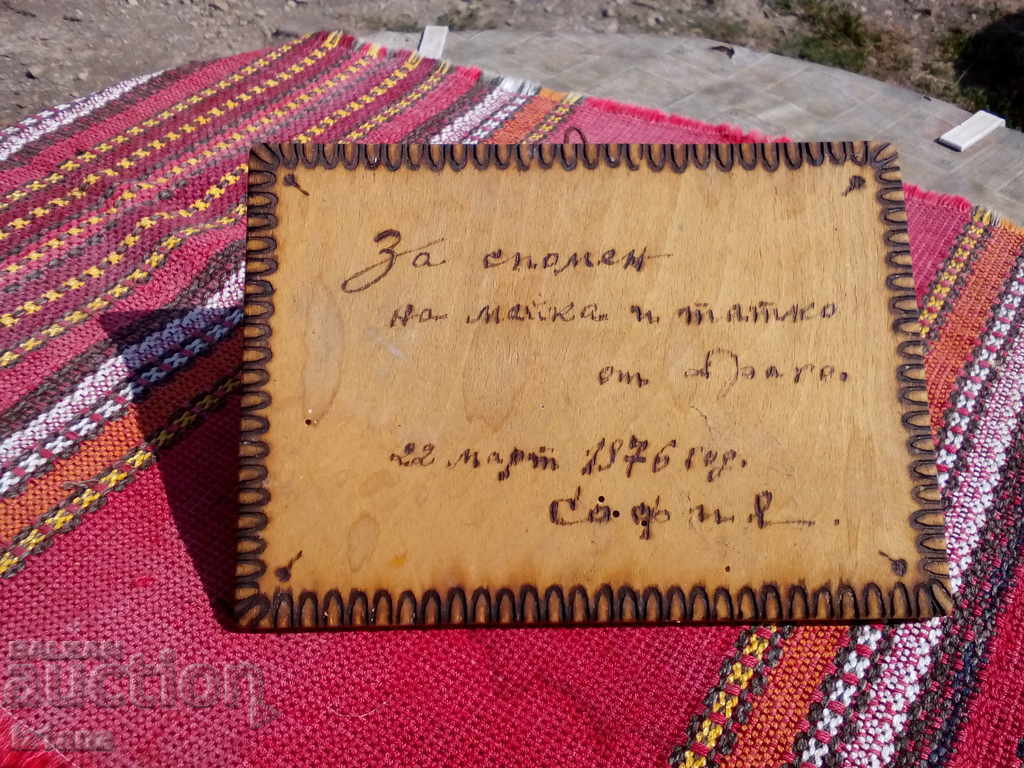 За спомен
на майка и татко
от
22 март 1876 год.
София.
BALKAN
auction